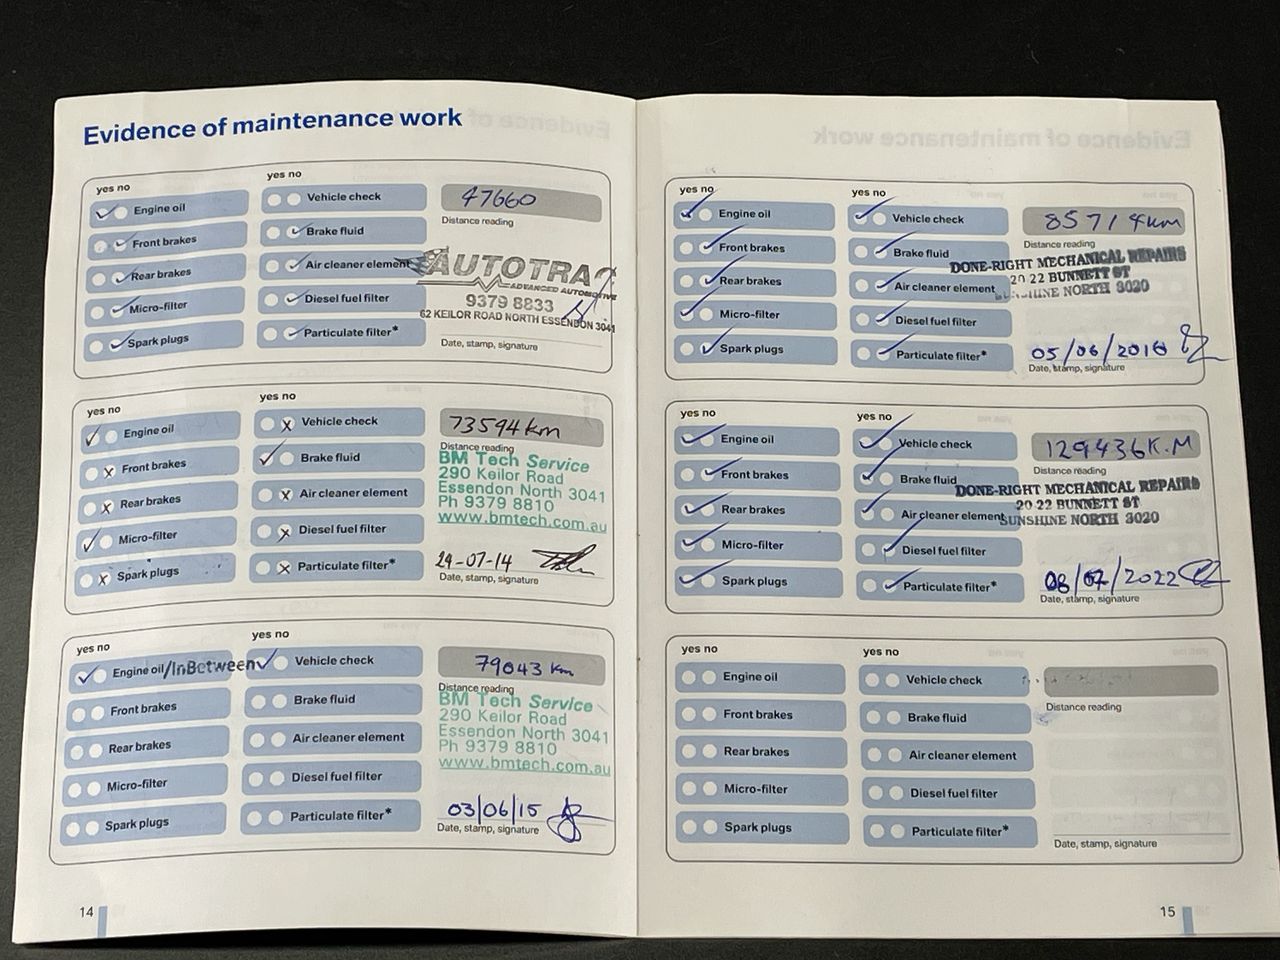 Evidence of maintenance work
yes no
yes no
Engine oil
Vehicle check
47660
Distance reading
Front brakes
Brake fluid
Rear brakes
Air cleaner element
AUTOTRA
ADVANCED AUTOMOTIVE
Micro-filter
Diesel fuel filter
9379 8833
62 KEILOR ROAD NORTH ESSENDON 3041
Spark plugs
Particulate filter*
Date, stamp, signature
yes no
yes no
Engine oil
Vehicle check
73594 km
Distance reading
Front brakes
Brake fluid
BM Tech Service
290 Keilor Road
Rear brakes
Air cleaner element
Essendon North 3041
Ph 9379 8810
Micro-filter
Diesel fuel filter
www.bmtech.com.au
Spark plugs
Particulate filter*
Date, stamp, signature
yes no
yes no
Engine oil/InBetween
Vehicle check
79043 km
Distance reading
Front brakes
Brake fluid
BM Tech Service
290 Keilor Road
Rear brakes
Air cleaner element
Essendon North 3041
Ph 9379 8810
Micro-filter
Diesel fuel filter
www.bmtech.com.au
Spark plugs
Particulate filter*
03/06/15
Date, stamp, signature
14
yes no
yes no
Engine oil
Vehicle check
85714km
Distance reading
Front brakes
Brake fluid
DONE-RIGHT MECHANICAL REPAIRS
Rear brakes
Air cleaner element
20 22 BUNNETT ST
SUNSHINE NORTH 3020
Micro-filter
Diesel fuel filter
Spark plugs
Particulate filter*
05/06/2016
Date, stamp, signature
yes no
yes no
Engine oil
Vehicle check
129436K.M
Distance reading
Front brakes
Brake fluid
DONE-RIGHT MECHANICAL REPAIRS
Rear brakes
Air cleaner element
20 22 BUNNETT ST
SUNSHINE NORTH 3020
Micro-filter
Diesel fuel filter
Spark plugs
Particulate filter*
08/07/2022
Date, stamp, signature
yes no
yes no
Engine oil
Vehicle check
Distance reading
Front brakes
Brake fluid
Rear brakes
Air cleaner element
Micro-filter
Diesel fuel filter
Spark plugs
Particulate filter*
Date, stamp, signature
15